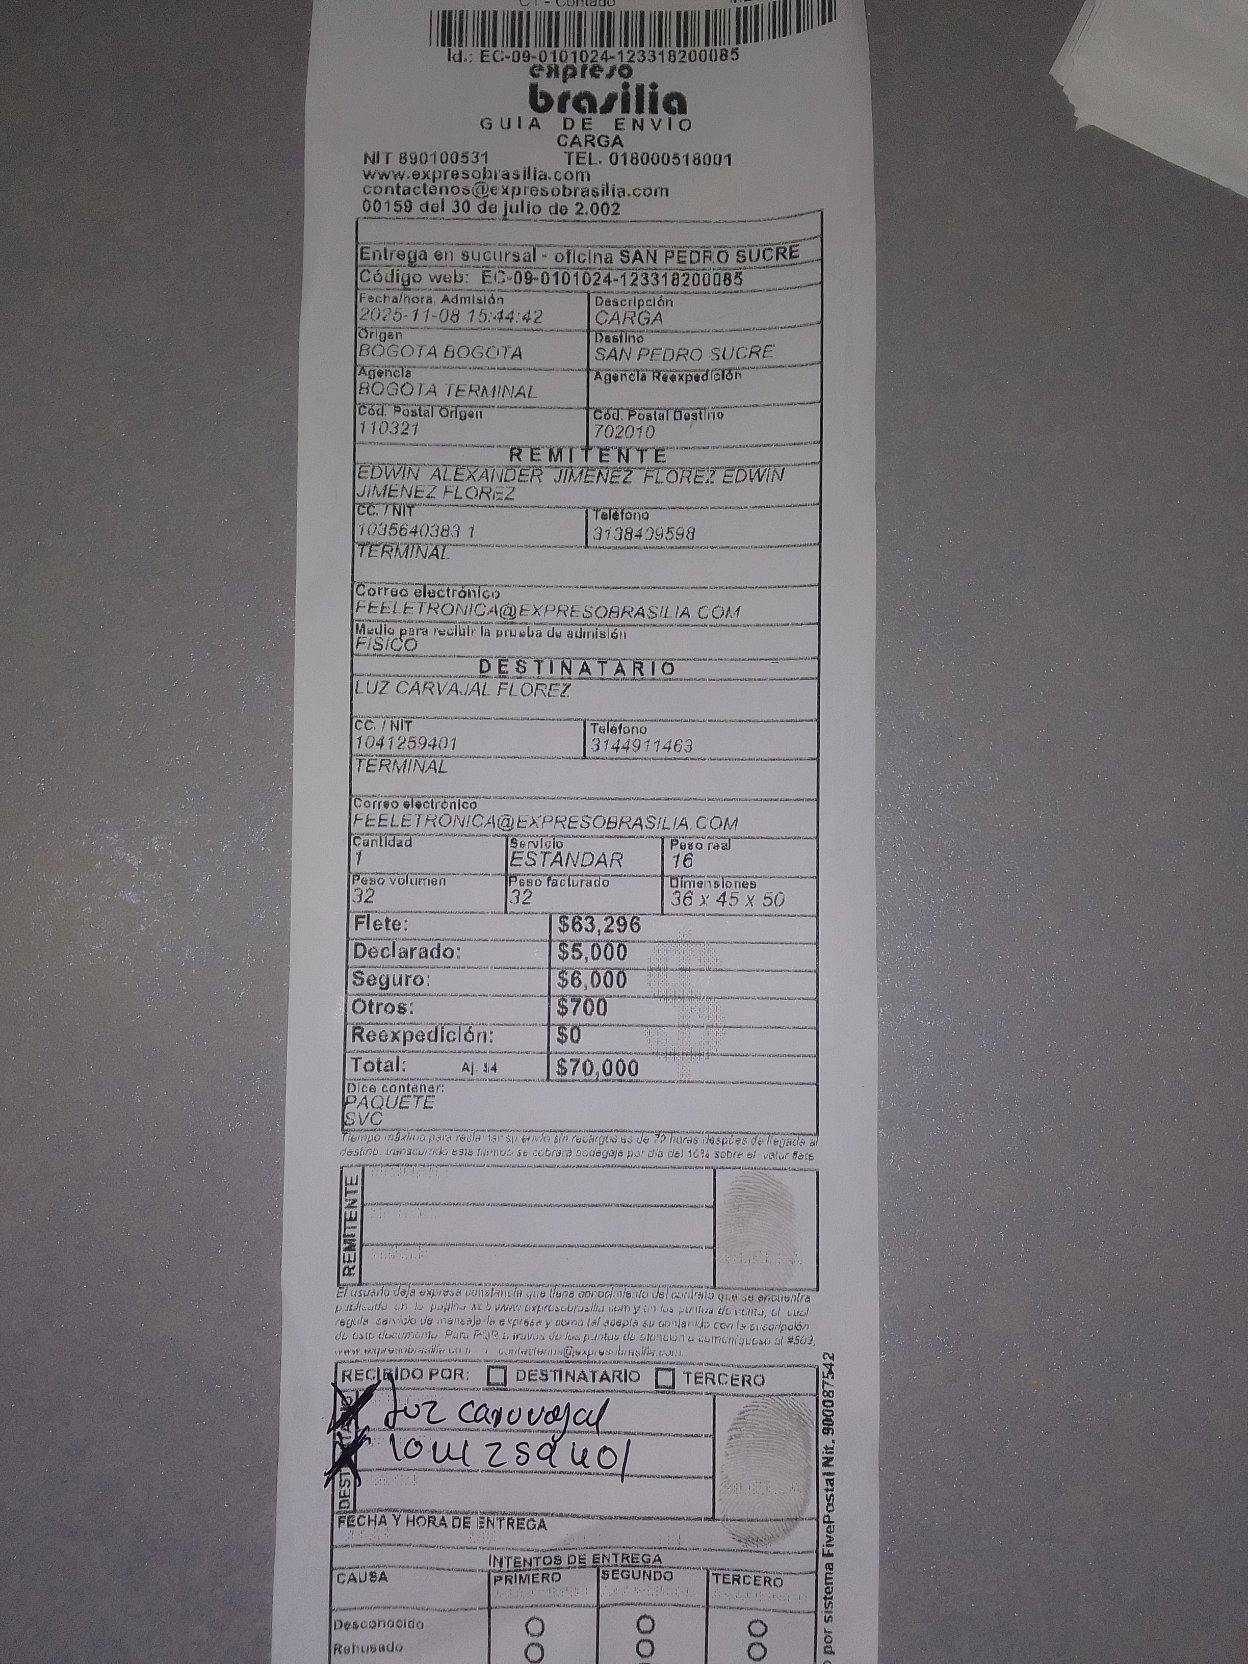 C1 - Contado
Id.: EC-09-0101024-123318200085
expreso
brasilia
GUIA DE ENVIO
CARGA
NIT 890100531 TEL. 018000518001
www.expresobrasilia.com
contactenos@expresobrasilia.com
00159 del 30 de julio de 2.002
Entrega en sucursal - oficina SAN PEDRO SUCRE
Código web: EC-09-0101024-123318200085
Fecha/hora Admisión Descripción
2025-11-08 15:44:42 CARGA
Origen Destino
BOGOTA BOGOTA SAN PEDRO SUCRE
Agencia Agencia Reexpedición
BOGOTA TERMINAL
Cód. Postal Origen Cód. Postal Destino
110321 702010
REMITENTE
EDWIN ALEXANDER JIMENEZ FLOREZ EDWIN
JIMENEZ FLOREZ
CC. / NIT Teléfono
1035640383 1 3138409598
TERMINAL
Correo electrónico
FEELETRONICA@EXPRESOBRASILIA.COM
Medio para recibir la prueba de admisión
FISICO
DESTINATARIO
LUZ CARVAJAL FLOREZ
CC. / NIT Teléfono
1041259401 3144911463
TERMINAL
Correo electrónico
FEELETRONICA@EXPRESOBRASILIA.COM
Cantidad Servicio Peso real
1 ESTANDAR 16
Peso volumen Peso facturado Dimensiones
32 32 36 x 45 x 50
Flete: $63,296
Declarado: $5,000
Seguro: $6,000
Otros: $700
Reexpedición: $0
Total: Aj. $4 $70,000
Dice contener:
PAQUETE
SVC
Tiempo máximo para reclamar su envío sin recargos es de 72 horas después de llegada al
destino, transcurrido este tiempo se cobrará bodegaje por día del 10% sobre el valor flete
REMITENTE
El usuario deja expresa constancia que tiene conocimiento del contrato que se encuentra
publicado en la página web www.expresobrasilia.com y en los puntos de venta, el cual
regula servicio de mensajería expresa y como tal acepta su contenido con la suscripción
de este documento. Para PQR a través de los puntos de atención o comuníquese al #502,
www.expresobrasilia.com contactenos@expresobrasilia.com
RECIBIDO POR: DESTINATARIO TERCERO
Luz Caruvajal
1041259401
FECHA Y HORA DE ENTREGA
INTENTOS DE ENTREGA
CAUSA PRIMERO SEGUNDO TERCERO
Desconocido
Rehusado
por sistema FivePostal Nit. 900087542